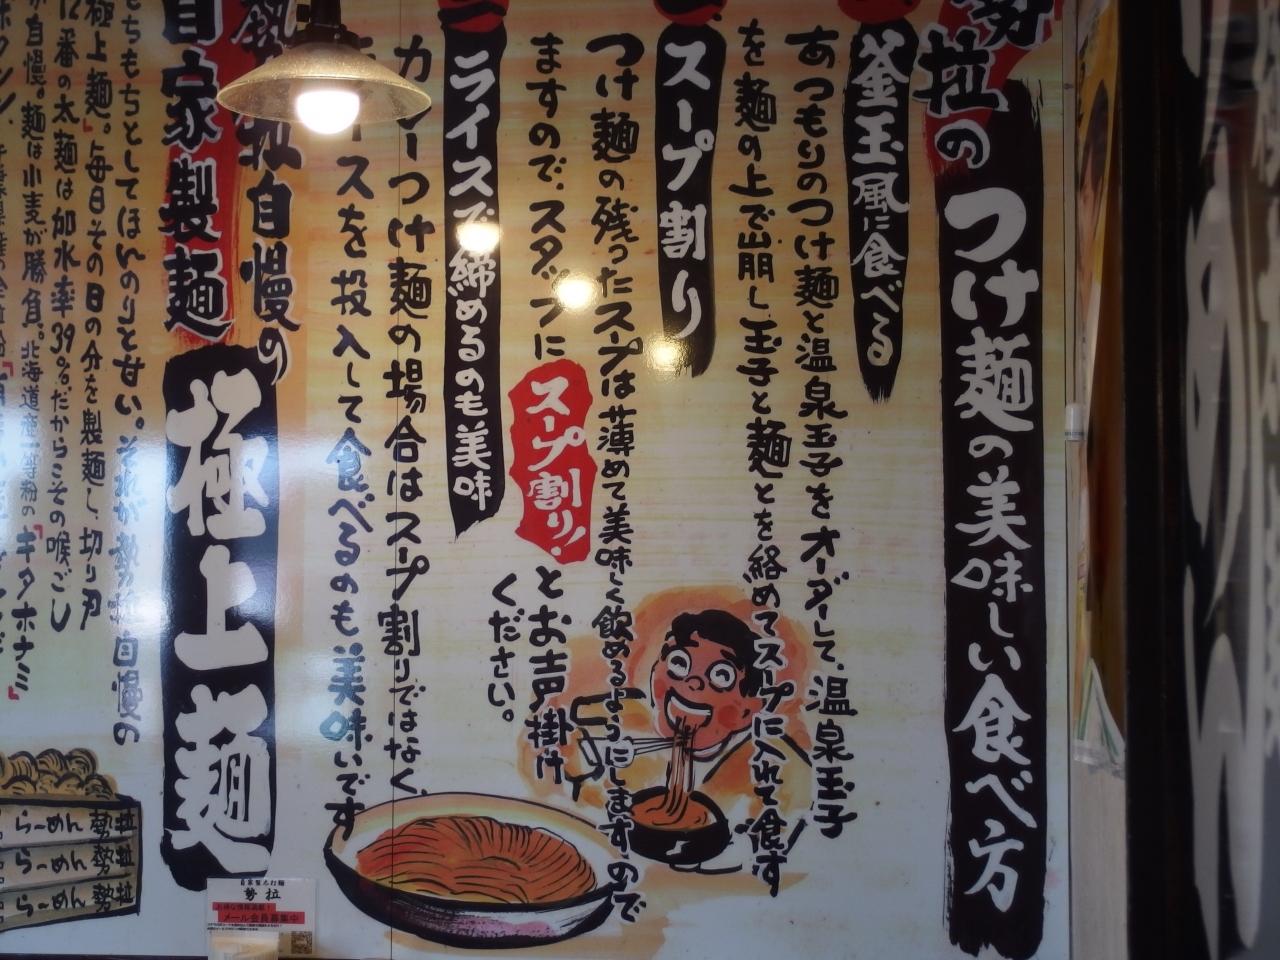 勢拉のつけ麺の美味しい食べ方
釜玉風に食べる
あつもりのつけ麺と温泉玉子をオーダーして、温泉玉子
を麺の上で崩し玉子と麺とを絡めてスープに入れて食す
スープ割り
つけ麺の残ったスープは薄めて美味しく飲めるようにしますので
ますので、スタッフに
スープ割り!
とお声掛け
ください。
ライスで締めるのも美味
カレーつけ麺の場合はスープ割りではなく、
スを投入して食べるのも美味いです
勢拉自慢の
自家製麺
極上麺
もちもちとしてほいのりと甘い。それが勢拉自慢の
極上麺』。毎日その日の分を製麺し、切り刃
12番の太麺は加水率39%だからこその喉ごし
自慢。麺は小麦が勝負。北海道産一等粉の『キタホナミ』
らーめん 勢拉
らーめん 勢拉
らーめん 勢拉
勢拉
メール会員募集中